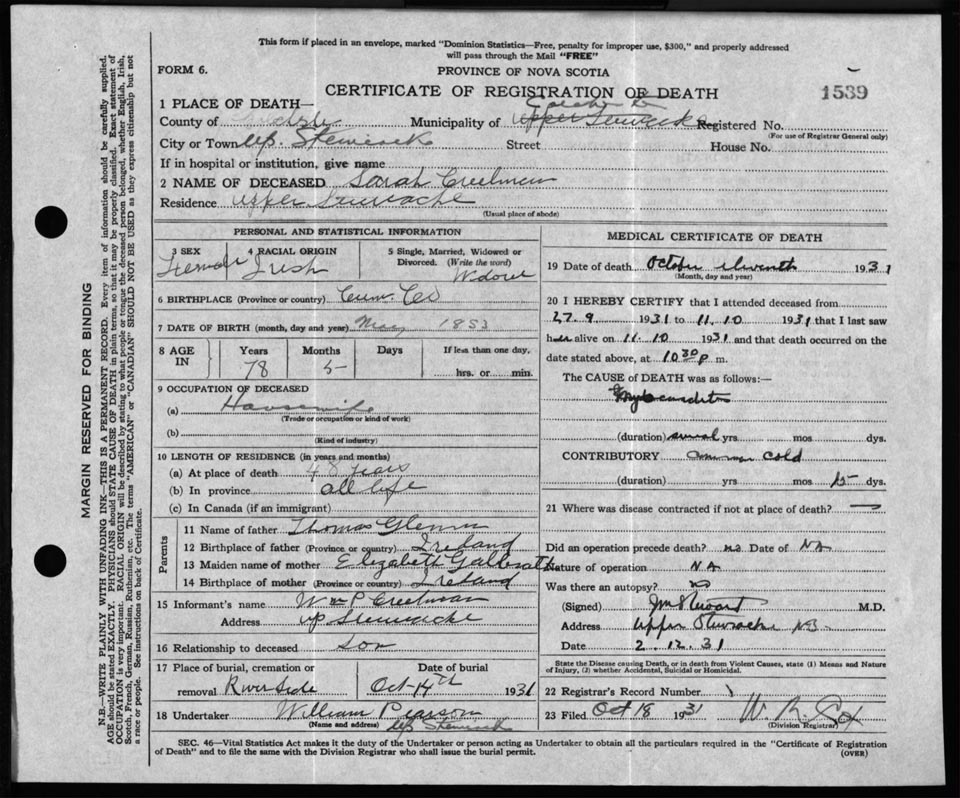 This form if placed in an envelope, marked "Dominion Statistics—Free, penalty for improper use, $300," and properly addressed
will pass through the Mail "FREE"
FORM 6.
PROVINCE OF NOVA SCOTIA
CERTIFICATE OF REGISTRATION OF DEATH
1539
1 PLACE OF DEATH—
County of Municipality of Registered No.
(For use of Registrar General only)
City or Town Up. Stewiacke Street House No.
If in hospital or institution, give name
2 NAME OF DECEASED Sarah Creelman
Residence Upper Stewiacke
(Usual place of abode)
PERSONAL AND STATISTICAL INFORMATION
3 SEX 4 RACIAL ORIGIN 5 Single, Married, Widowed or
Divorced. (Write the word)
Female Irish Widow
6 BIRTHPLACE (Province or country) Cum. Co
7 DATE OF BIRTH (month, day and year) May 1853
8 AGE IN Years Months Days If less than one day,
78 5 hrs. or min.
9 OCCUPATION OF DECEASED
(a) Housewife
(Trade or occupation or kind of work)
(b)
(Kind of industry)
10 LENGTH OF RESIDENCE (in years and months)
(a) At place of death 48 years
(b) In province all life
(c) In Canada (if an immigrant)
Parents
11 Name of father Thomas Glenn
12 Birthplace of father (Province or country) Ireland
13 Maiden name of mother Elizabeth Galbreath
14 Birthplace of mother (Province or country) Ireland
15 Informant's name Wm P Creelman
Address Up Stewiacke
16 Relationship to deceased son
17 Place of burial, cremation or Date of burial
removal Riverside Oct 14th 1931
18 Undertaker William Pearson
(Name and address) Up Stewiacke
MEDICAL CERTIFICATE OF DEATH
19 Date of death October eleventh 1931
(Month, day and year)
20 I HEREBY CERTIFY that I attended deceased from
27.9 1931 to 11.10 1931 that I last saw
her alive on 11.10 1931 and that death occurred on the
date stated above, at 10.30 p m.
The CAUSE of DEATH was as follows:—
Myocarditis
(duration) several yrs mos dys.
CONTRIBUTORY common cold
(duration) yrs mos 15 dys.
21 Where was disease contracted if not at place of death?
Did an operation precede death? no Date of NA
Nature of operation NA
Was there an autopsy? no
(Signed) M.D.
Address Upper Stewiacke NS
Date 2.12.31
State the Disease causing Death, or in death from Violent Causes, state (1) Means and Nature
of Injury, (2) whether Accidental, Suicidal or Homicidal.
22 Registrar's Record Number
23 Filed Oct 18 1931 W. R. Cox
(Division Registrar)
SEC. 46—Vital Statistics Act makes it the duty of the Undertaker or person acting as Undertaker to obtain all the particulars required in the "Certificate of Registration
of Death" and to file the same with the Division Registrar who shall issue the burial permit.
(OVER)
MARGIN RESERVED FOR BINDING
N.B.—WRITE PLAINLY WITH UNFADING INK—THIS IS A PERMANENT RECORD. Every item of information should be carefully supplied.
AGE should be stated EXACTLY. PHYSICIANS should STATE CAUSE OF DEATH in plain terms, so that it may be properly classified. Exact statement of
OCCUPATION is very important. RACIAL ORIGIN will be described by stating to what people or tongue the deceased person belonged, whether English, Irish,
Scotch, French, German, Russian, Ruthenian, etc. The terms "AMERICAN" or "CANADIAN" SHOULD NOT BE USED as they express citizenship but not
a race or people. See instructions on back of Certificate.